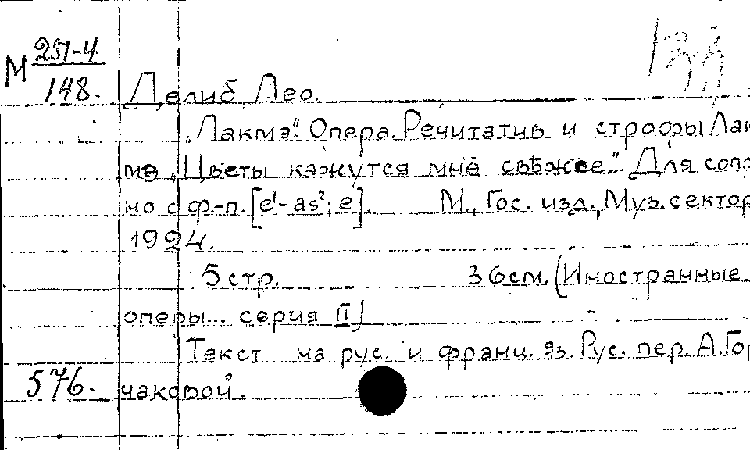 М 251-4
148.
Делиб, Лео.
„Лакмэ". Опера. Речитатив и строфы Лак
мэ „Цветы кажутся мне свежее". Для сопра
но с ф-п. [e¹-as²; e]. М., Гос. изд., Муз. сектор
1924.
5 стр. 36 см. (Иностранные
оперы... серия II)
Текст на рус. и франц. яз. Рус. пер. А. Гор
576. чаковой.